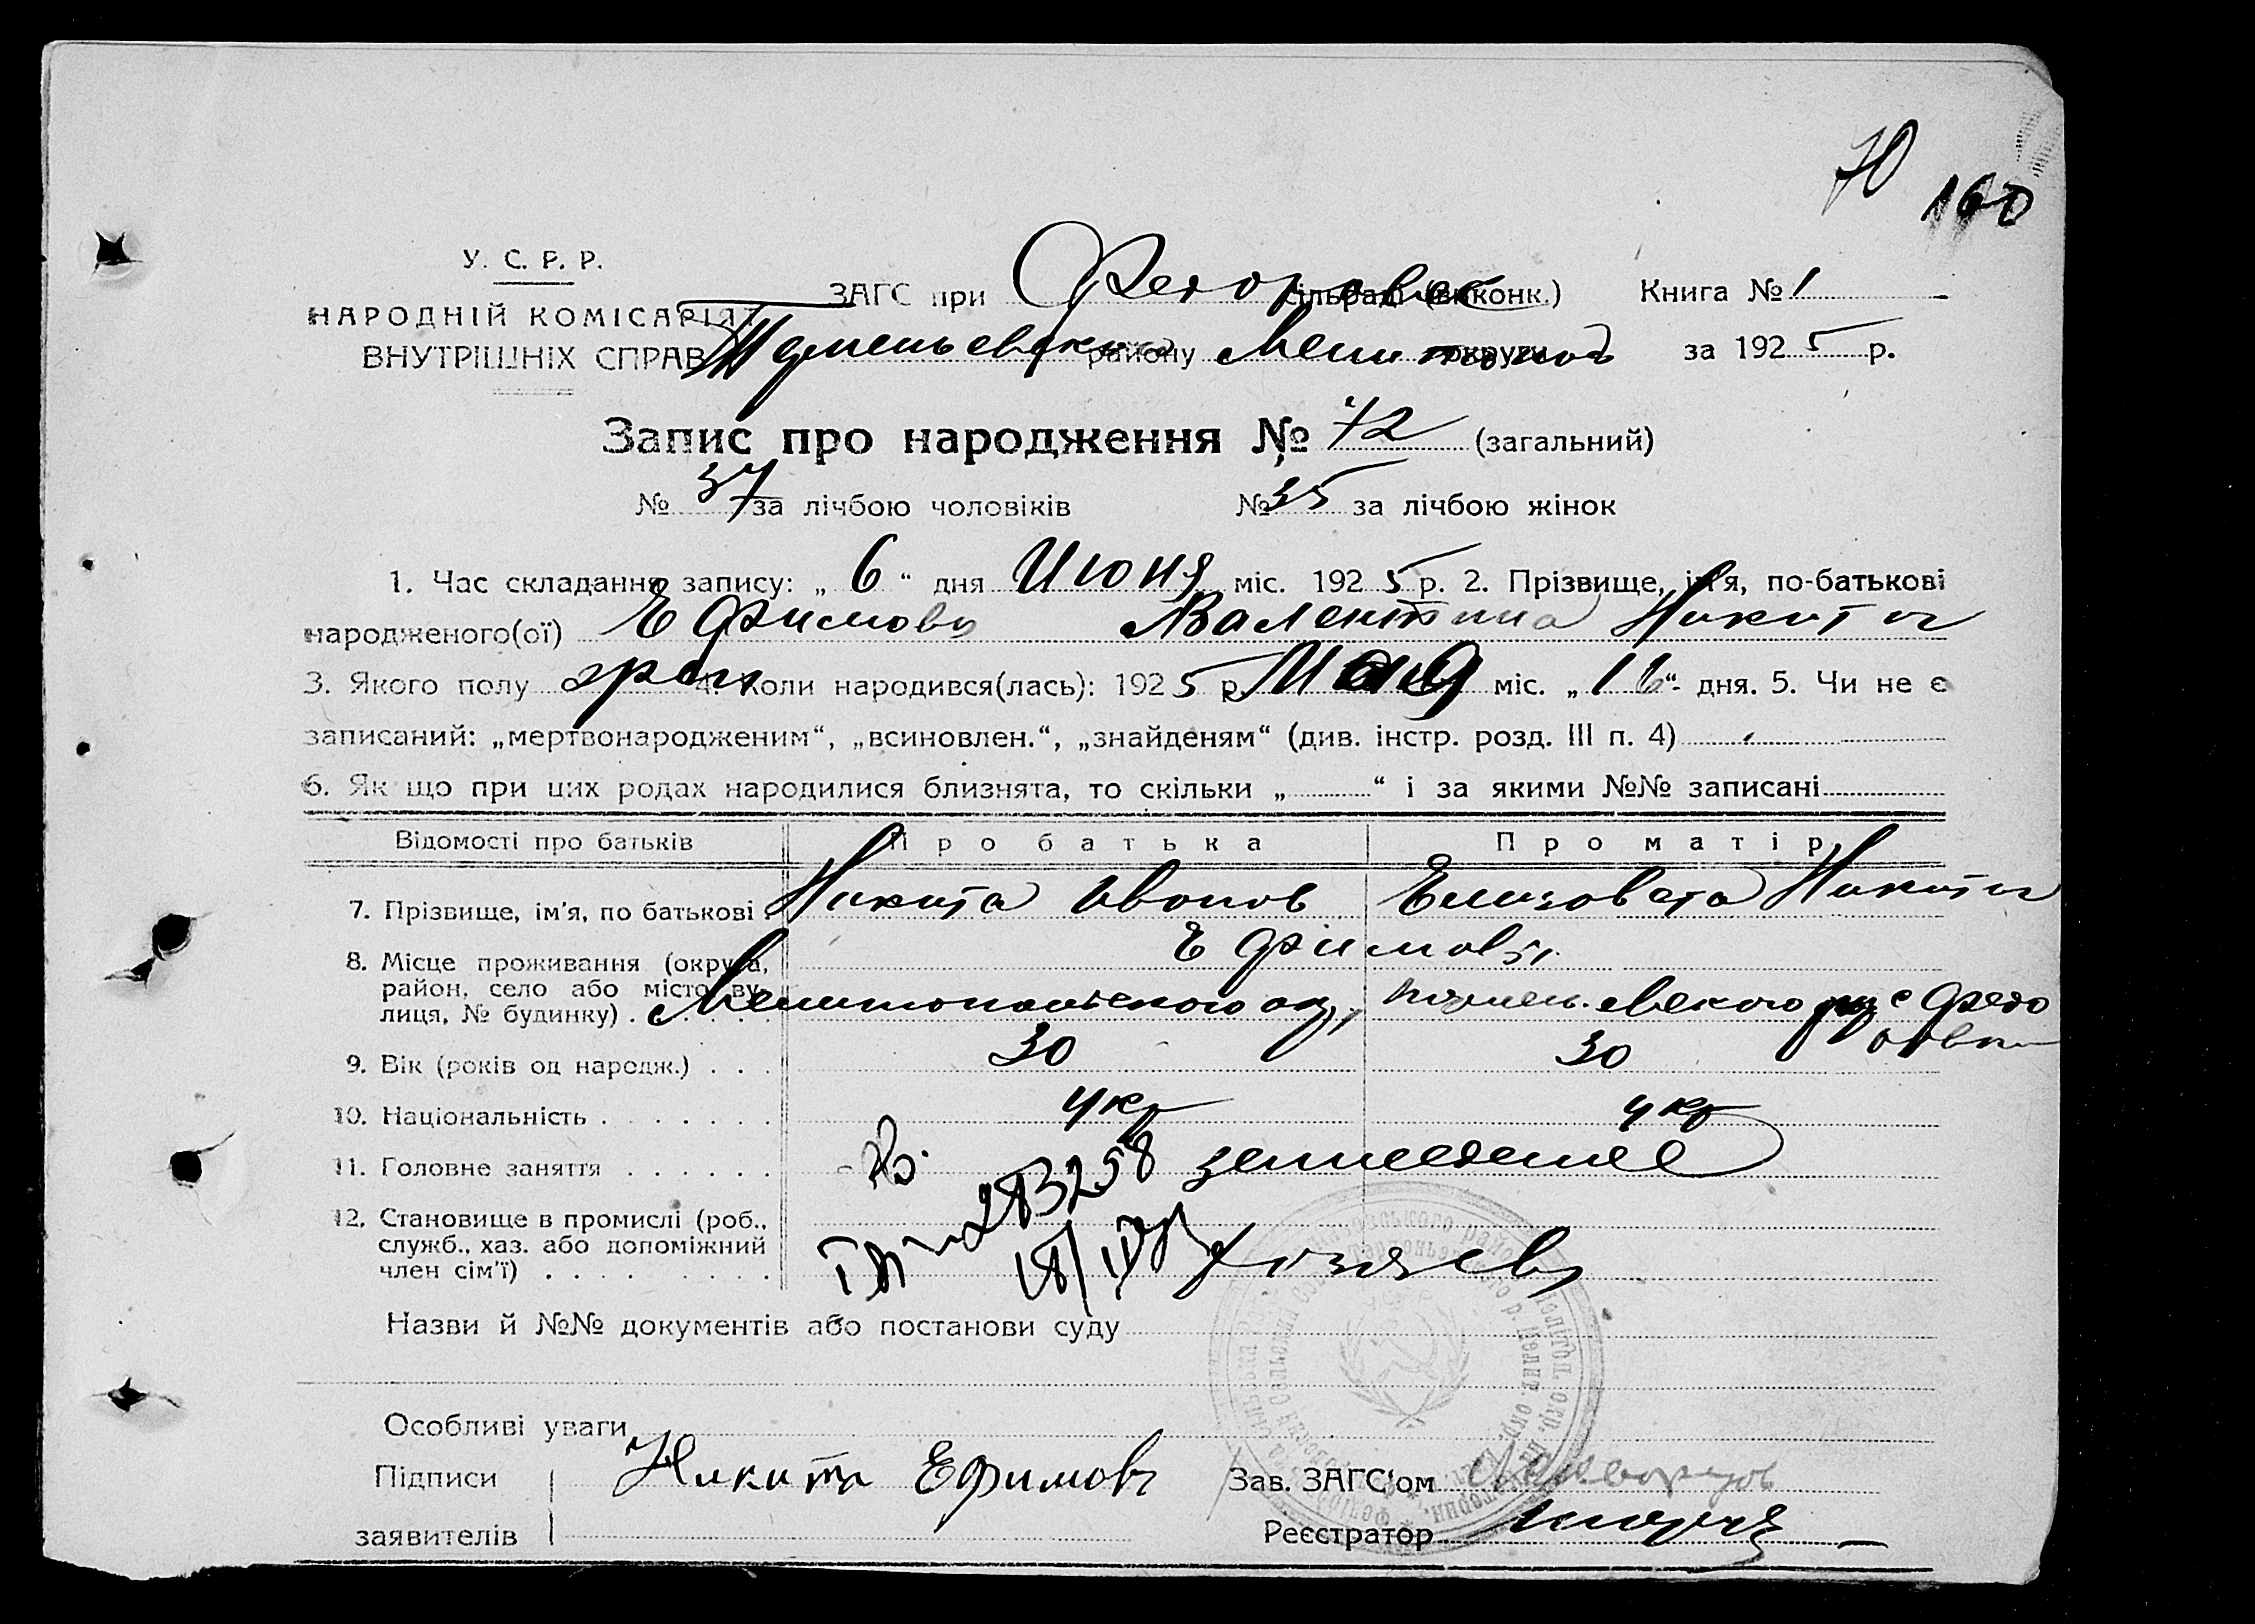 70
160
У. С. Р. Р.
НАРОДНІЙ КОМІСАРІЯТ
ВНУТРІШНІХ СПРАВ
ЗАГС при Федоровс сільраді (виконк.) Книга № 1
району Мелитопол округи за 1925 р.
Запис про народження № 72 (загальний)
№ 37 за лічбою чоловіків № 35 за лічбою жінок
1. Час складання запису: „ 6 “ дня Июня міс. 1925 р. 2. Прізвище, ім'я, по-батькові
народженого(ої) Ефимова Валентина Никит
3. Якого полу 4. Коли народився(лась): 1925 р. Мая міс. „ 16 “ дня. 5. Чи не є
записаний: „мертвонародженим“, „всиновлен.“, „знайденям“ (див. інстр. розд. III п. 4)
6. Як що при цих родах народилися близнята, то скільки „ “ і за якими №№ записані
Відомості про батьків Про батька Про матір
7. Прізвище, ім'я, по батькові Никита Иванов Елизовета Никит
Ефимовы
8. Місце проживання (округа,
район, село або місто, ву-
лиця, № будинку) Мелитопольского ок, с Федо
ровка
9. Вік (років од народж.) 30 30
10. Національність укр укр
11. Головне заняття земледелие
283258
12. Становище в промислі (роб.,
служб., хаз. або допоміжний
член сім'ї) хозяева
Назви й №№ документів або постанови суду
Особливі уваги
Підписи Никита Ефимовъ Зав. ЗАГС'ом
заявителів Реєстратор